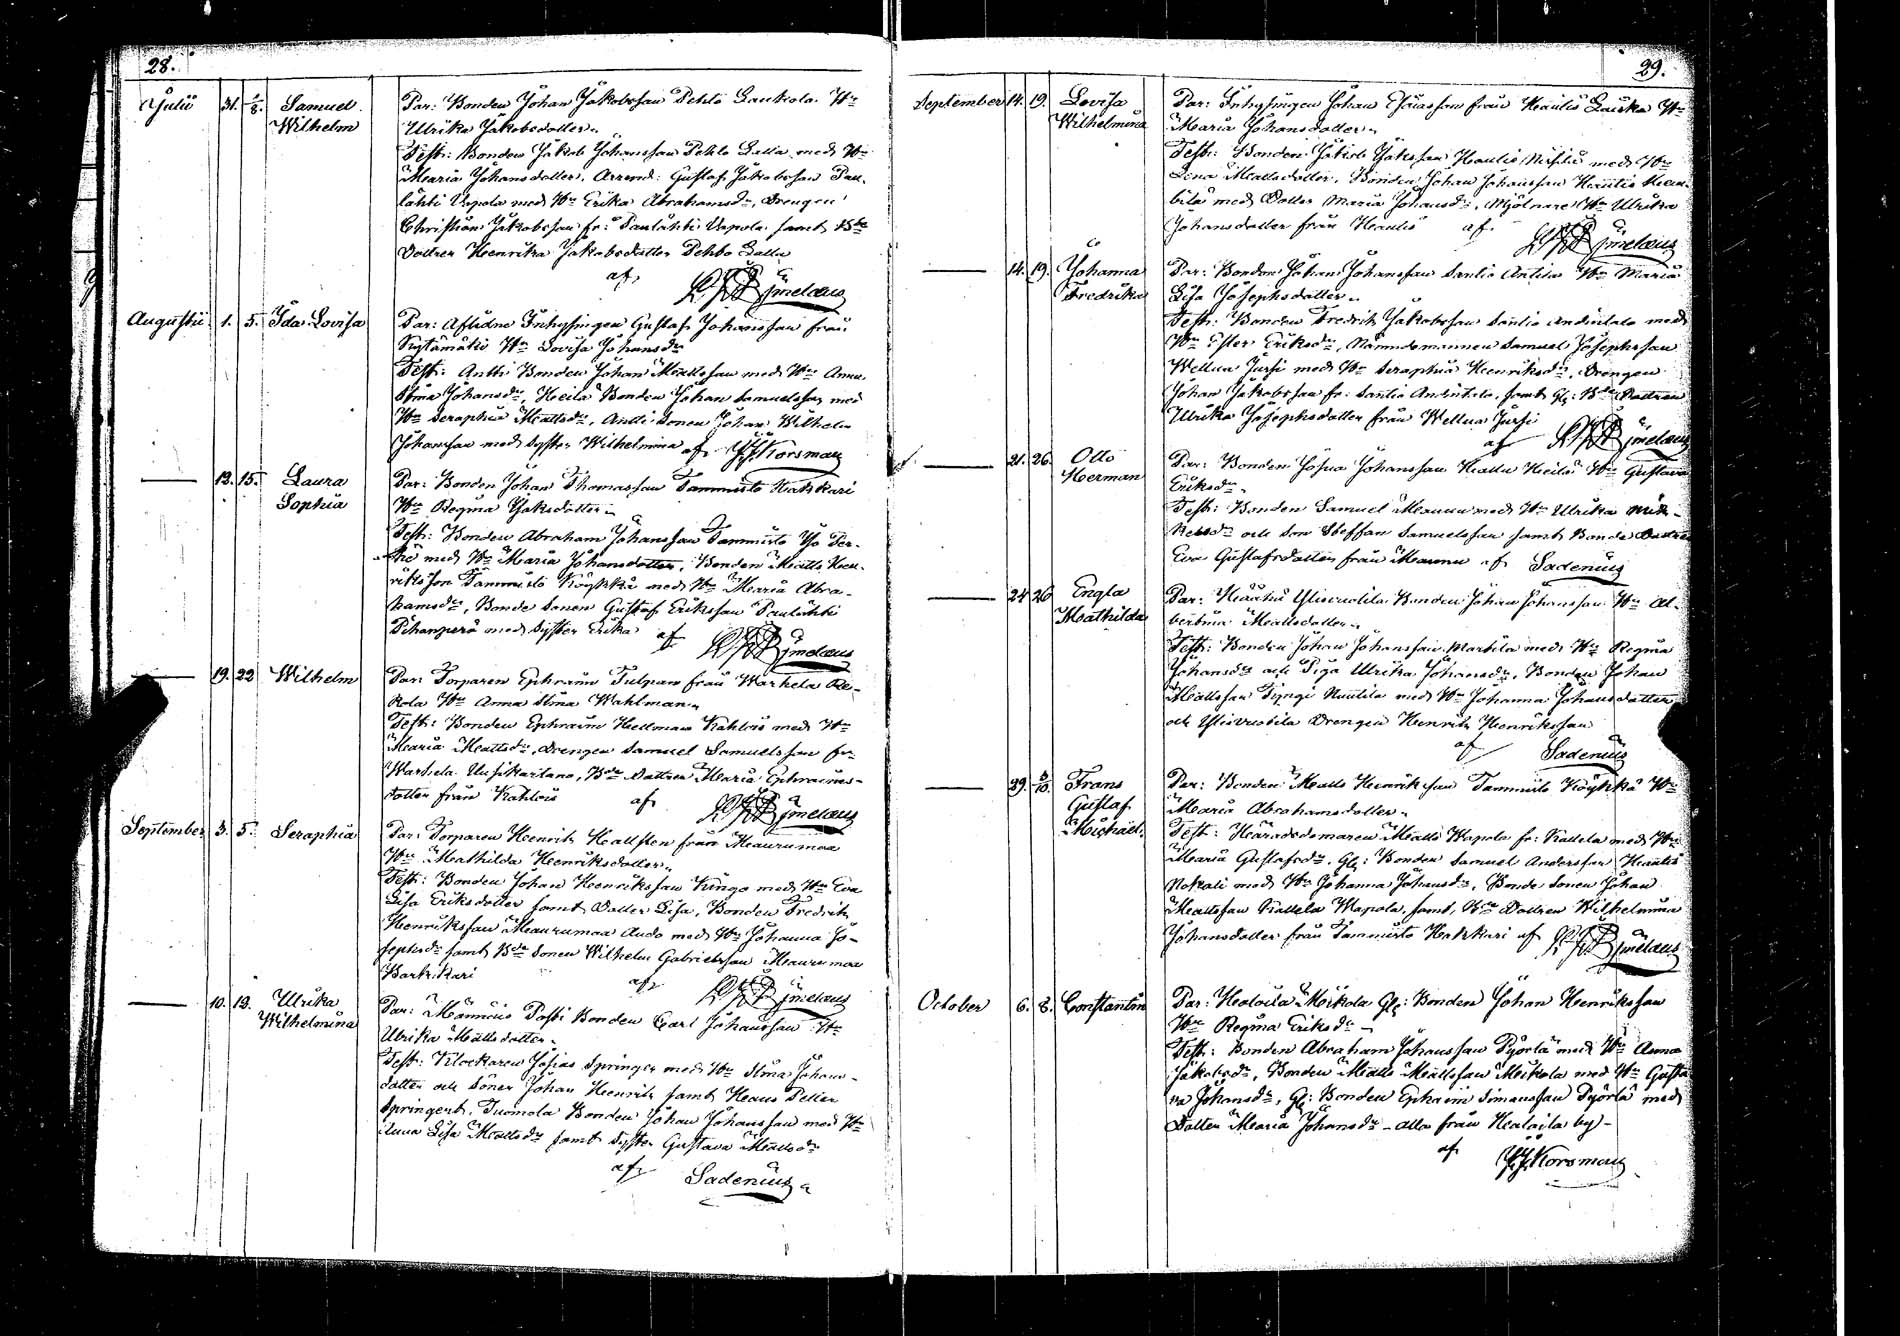 28.
Julii 31. 1/8. Samuel Wilhelm
Par: Bonden Johan Jakobsson Pehto Laukola. H:u
Ulrika Jakobsdotter.
Test: Bonden Jakob Johansson Pehto Lalla med H:u
Maria Johansdotter. Arrend: Gustaf Jakobsson Pau-
lahti Uspola med H:u Erika Abrahamsd:r, Drengen
Christian Jakobsson fr: Paulahti Uspola samt B:de
Dottren Henrika Jakobsdotter Pehto Lalla
af
Augustii 1. 5. Ida Lovisa
Par: Aflidne Inhysingen Gustaf Johansson från
H:u Lovisa Johansd:r
Test: Antti Bonden Johan Mattsson med H:u Anna
Stina Johansd:r, Heila Bonden Johan Samuelsson med
H:u Seraphia Mattsd:r, Antti Sonen Johan Wilhelm
Johansson med syster Wilhelmina af J.J. Korsman
13. 15. Laura Sophia
Par: Bonden Johan Thomasson Tammisto Katzkari
H:u Regina Isaksdotter.
Test: Bonden Abraham Johansson Tammisto Yö Per-
med H:u Maria Johansdotter, Bonden Matts Hen-
riksson Tammisto Köykkä med H:u Maria Abra-
hamsd:r, Bonde Sonen Gustaf Eriksson Paulahti
Pihanperä med syster Erika af
19. 22 Wilhelm
Par: Torparen Ephraim Tulpan från Warhela Re-
kola H:u Anna Stina Wahlman.
Test: Bonden Ephraim Hellman Kahlois med H:u
Maria Mattsd:r, Drengen Samuel Samuelsson fr:
Warhela Uusikartano, B:de Dottren Maria Ephraims-
dotter från Kahlois af
September 3. 5. Seraphia
Par: Torparen Henrik Hallsten från Maurumaa
H:u Mathilda Henriksdotter.
Test: Bonden Johan Henriksson Kingo med H:u Eva
Lisa Eriksdotter samt Dotter Lisa, Bonden Fredrik
Henriksson Maurumaa Audo med H:u Johanna Jo-
sephsd:r samt B:de Sonen Wilhelm Gabrielsson Maurumaa
Karkikari af
10. 13. Ulrika Wilhelmina
Par: Männäis Passi Bonden Carl Johansson H:u
Ulrika Mattsdotter.
Test: Klockaren Josias Springer med H:u Stina Johans-
dotter och Söner Johan Henrik samt Klaus Petter
Springert. Tuomola Bonden Johan Johansson med H:u
Anna Lisa Mattsd:r samt syster Gustava Mattsd:r
af Sadenius
29.
September 14. 19. Lovisa Wilhelmina
Par: Inhysingen Johan Esaiasson från Hautis Lauska H:u
Maria Johansdotter.
Test: Bonden Jakob Isaksson Hautis med H:u
Lena Mattsdotter, Bonden Johan Johansson Hautis
med Dotter Maria Johansd:r, Mjölnare H:u Ulrika
Johansdotter från Hautis af
14. 19. Johanna Fredrika
Par: Bonden Johan Johansson Santio Antila H:u Maria
Lisa Josephsdotter.
Test: Bonden Fredrik Jakobsson Santio Andintalo med
H:u Ester Eriksd:r, Nämndemannen Samuel Josephsson
Wellua Jussi med H:u Seraphia Henriksd:r, Drengen
Johan Jakobsson fr: Santio Andintalo samt Gl: B:de Dottren
Ulrika Josephsdotter från Wellua Jussi
af
21. 26. Otto Herman
Par: Bonden Josua Johansson Kallu Heila H:u Gustava
Eriksd:r.
Test: Bonden Samuel Maunu med H:u Ulrika Mik-
kelsd:r och Son Steffan Samuelsson samt Bonde Dottren
Eva Gustafsdotter från Maunu af Sadenius
24 26 Engla Mathilda
Par: Ylivuolila Bonden Johan Johansson H:u Al-
bertina Mattsdotter.
Test: Bonden Johan Johansson Markula med H:u Regina
Johansd:r och Piga Ulrika Johansd:r, Bonden Johan
Mattsson med H:u Johanna Johansdotter
och Drengen Henrik Henriksson
af Sadenius
29. 3/10. Frans Gustaf Michael.
Par: Bonden Matts Henriksson Tammisto Köykkä H:u
Maria Abrahamsdotter.
Test: Häradsdomaren Matts Wapola fr: Kattela med H:u
Maria Gustafsd:r, Gl: Bonden Samuel Andersson Hautis
Nokali med H:u Johanna Johansd:r, Bonde Sonen Johan
Mattsson Kattela Wapola, samt, B:de Dottren Wilhelmina
Johansdotter från Tammisto Katzkari af
October 6. 8. Constantin
Par: Healoila Mikola Gl: Bonden Johan Henriksson
H:u Regina Eriksd:r
Test: Bonden Abraham Johansson Pyörlä med H:u Anna
Jakobsd:r, Bonden Matts Mattsson Mikola med H:u Gusta
va Johansd:r, Gl: Bonden Ephraim Simonsson Pyörlä med
Dotter Maria Johansd:r - alla från Healoila by -
af J.J. Korsman